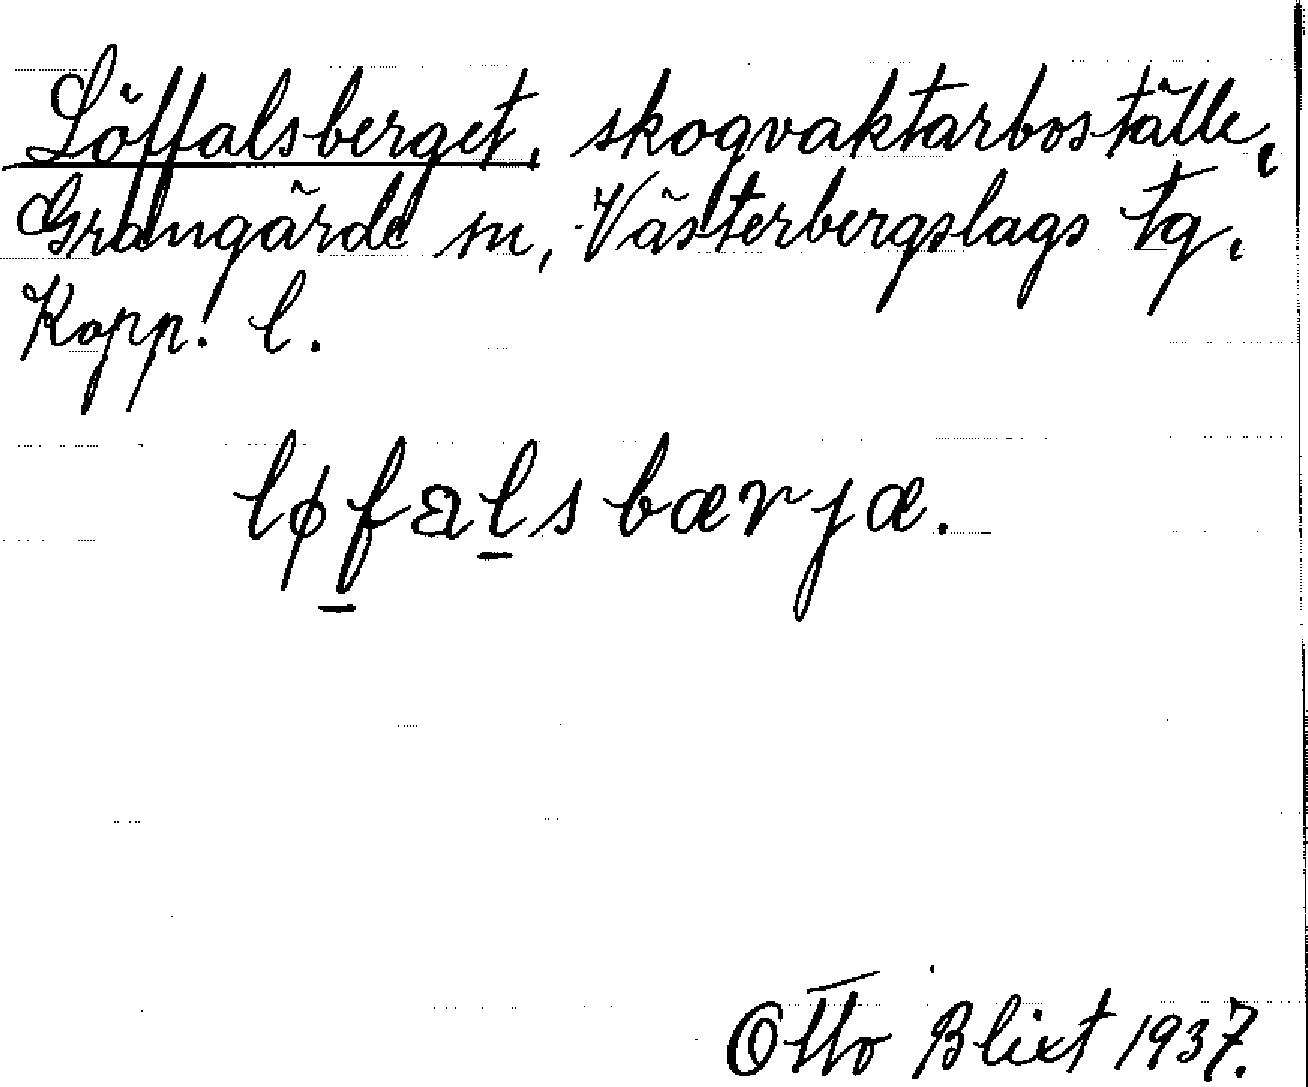 Löffalsberget, skogvaktarboställe,
Grangärde sn, Västerbergslags tg.
Kopp. l.
løf̲al̲sbærjæ.
Otto Blixt 1937.